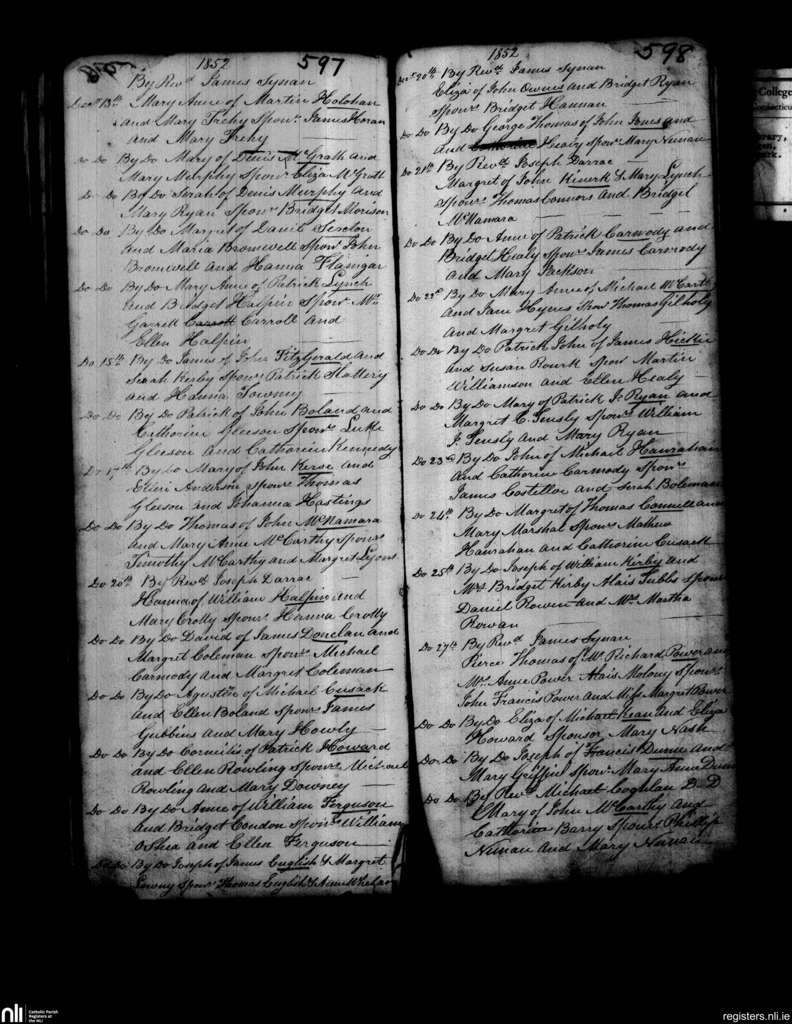 1852 597
By Revd. James Synan
13th Mary Anne of Martin Holohan
and Mary Trehy Sponr. James Horan
and Mary Trehy
Do Do By Do Mary of Denis McGrath and
Mary Murphy Sponr. Eliza McGrath
Do Do By Do Sarah of Denis Murphy and
Mary Ryan Sponr. Bridget Morison
Do Do By Do Margret of Daniel Sexton
and Maria Bromwell Sponr. John
Bromwell and Hanna Flanigan
Do Do By Do Mary Anne of Patrick Lynch
and Bridget Halpin Sponr. Wm
Garrett Carroll and
Ellen Halpin
Do 15th By Do James of John FitzGerald and
Sarah Kerby Sponr. Patrick Slattery
and Hanna
Do Do By Do Patrick of John Boland and
Catherine Gleeson Sponr. Luke
Gleeson and Catherine Kennedy
Do 17th By Do Mary of John Kerse and
Ellen Anderson Sponr. Thomas
Gleeson and Johanna Hastings
Do Do By Do Thomas of John McNamara
and Mary Anne McCarthy Sponr.
Timothy McCarthy and Margret Lyons
Do 20th By Revd. Joseph Darrac
Hanna of William Halpin and
Mary Crotty Sponr. Hanna Crotty
Do Do By Do David of James Donelan and
Margret Coleman Sponr. Michael
Carmody and Margret Coleman
Do Do By Do Agustin of Michael Cusack
and Ellen Boland Sponr. James
Gubbins and Mary Howly
Do Do By Do Cornilis of Patrick Howard
and Ellen Rowling Sponr. Michael
Rowling and Mary Downey
Do Do By Do Anne of William Ferguson
and Bridget Condon Sponr. William
OShea and Ellen Ferguson
Do Do By Do Joseph of James English & Margret
Sponr. Thomas English & Anne Whelan
1852 598
20th By Revd. James Synan
Eliza of John Ownes and Bridget Ryan
Sponr. Bridget Hannan
Do Do By Do George Thomas of John Jones and
and Heavy Sponr. Mary Nunan
Do 21st By Revd. Joseph Darrac
Margret of John Kinerk & Mary Lynch
Sponr. Thomas Connors and Bridget
McNamara
Do Do By Do Anne of Patrick Carmody and
Bridget Healy Sponr. James Carmody
and Mary Jackson
Do 22d By Do Mary Anne of Michael McCarthy
and Jane Hynes Sponr. Thomas Gilholy
and Margret Gilholy
Do Do By Do Patrick John of James Hickie
and Susan Bourk Sponr. Martin
Williamson and Ellen Healy
Do Do By Do Mary of Patrick J. Ryan and
Margret C. Sponr. William
J. and Mary Ryan
Do 23d By Do John of Michael Hanrahan
and Catherine Carmody Sponr.
James Costelloe and Sarah Boleman
Do 24th By Do Margret of Thomas Connell and
Mary Marshal Sponr. Mathew
Hanrahan and Catherine Cusack
Do 25th By Do Joseph of William Kirby and
Mrs. Bridget Kirby Alais Tubbs Sponr.
Daniel Rowan and Mrs. Martha
Rowan
Do 27th By Revd. James Synan
Pierce Thomas of Mr. Richard Power and
Mrs. Anne Power Alais Molony Sponr.
John Francis Power and Wife Margret
Do Do By Do Eliza of Michael Kean and Eliza
Howard Sponsor Mary Nash
Do Do By Do Joseph of Francis Dunne and
Mary Griffin Sponr. Mary Anne Dunne
Do Do By Revd. Michael Coghlan D.D
Mary of John McCarthy and
Catherine Barry Sponr. Phillip
Nunan and Mary Nunan
College
nli
Catholic Parish
Registers at
the NLI
registers.nli.ie